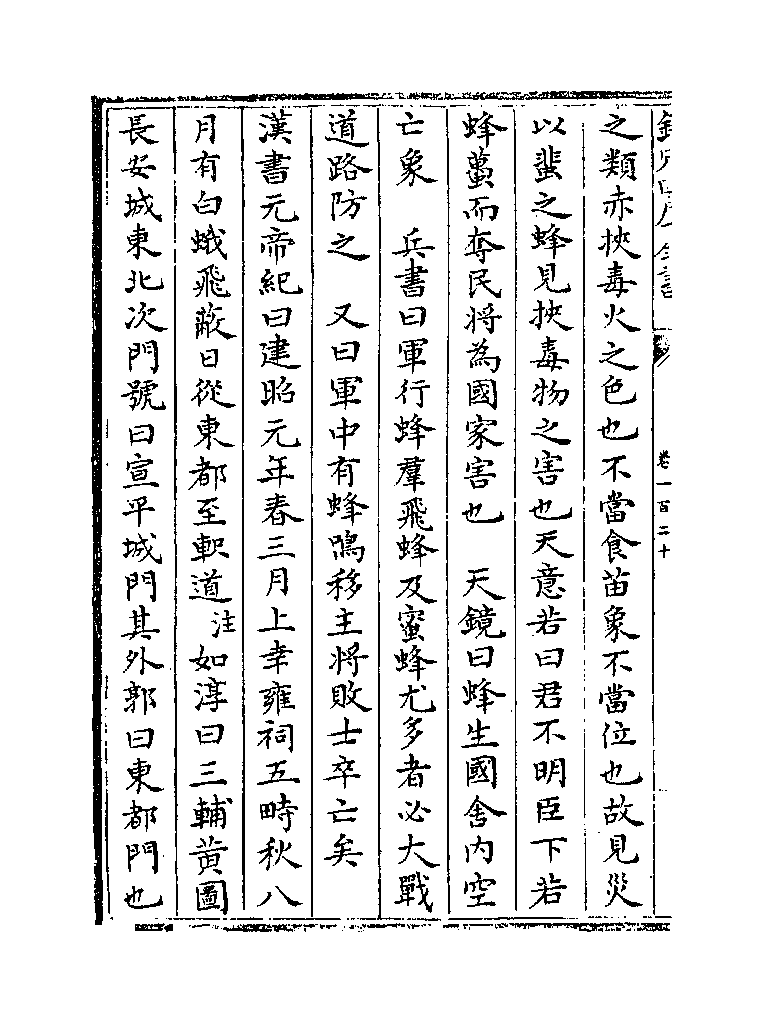 欽定四庫全書
卷一百二十
之類赤挾毒火之色也不當食苗象不當位也故見災
以蜚之蜂見挾毒物之害也天意若曰君不明臣下若
蜂蠆而奪民將為國家害也　天鏡曰蜂生國舍内空
亡象　兵書曰軍行蜂羣飛蜂及蜜蜂尤多者必大戰
道路防之　又曰軍中有蜂鳴移主將敗士卒亡矣
漢書元帝紀曰建昭元年春三月上幸雍祠五畤秋八
月有白蛾飛蔽日從東都至軹道注如淳曰三輔黄圖
長安城東北次門號曰宣平城門其外郭曰東都門也